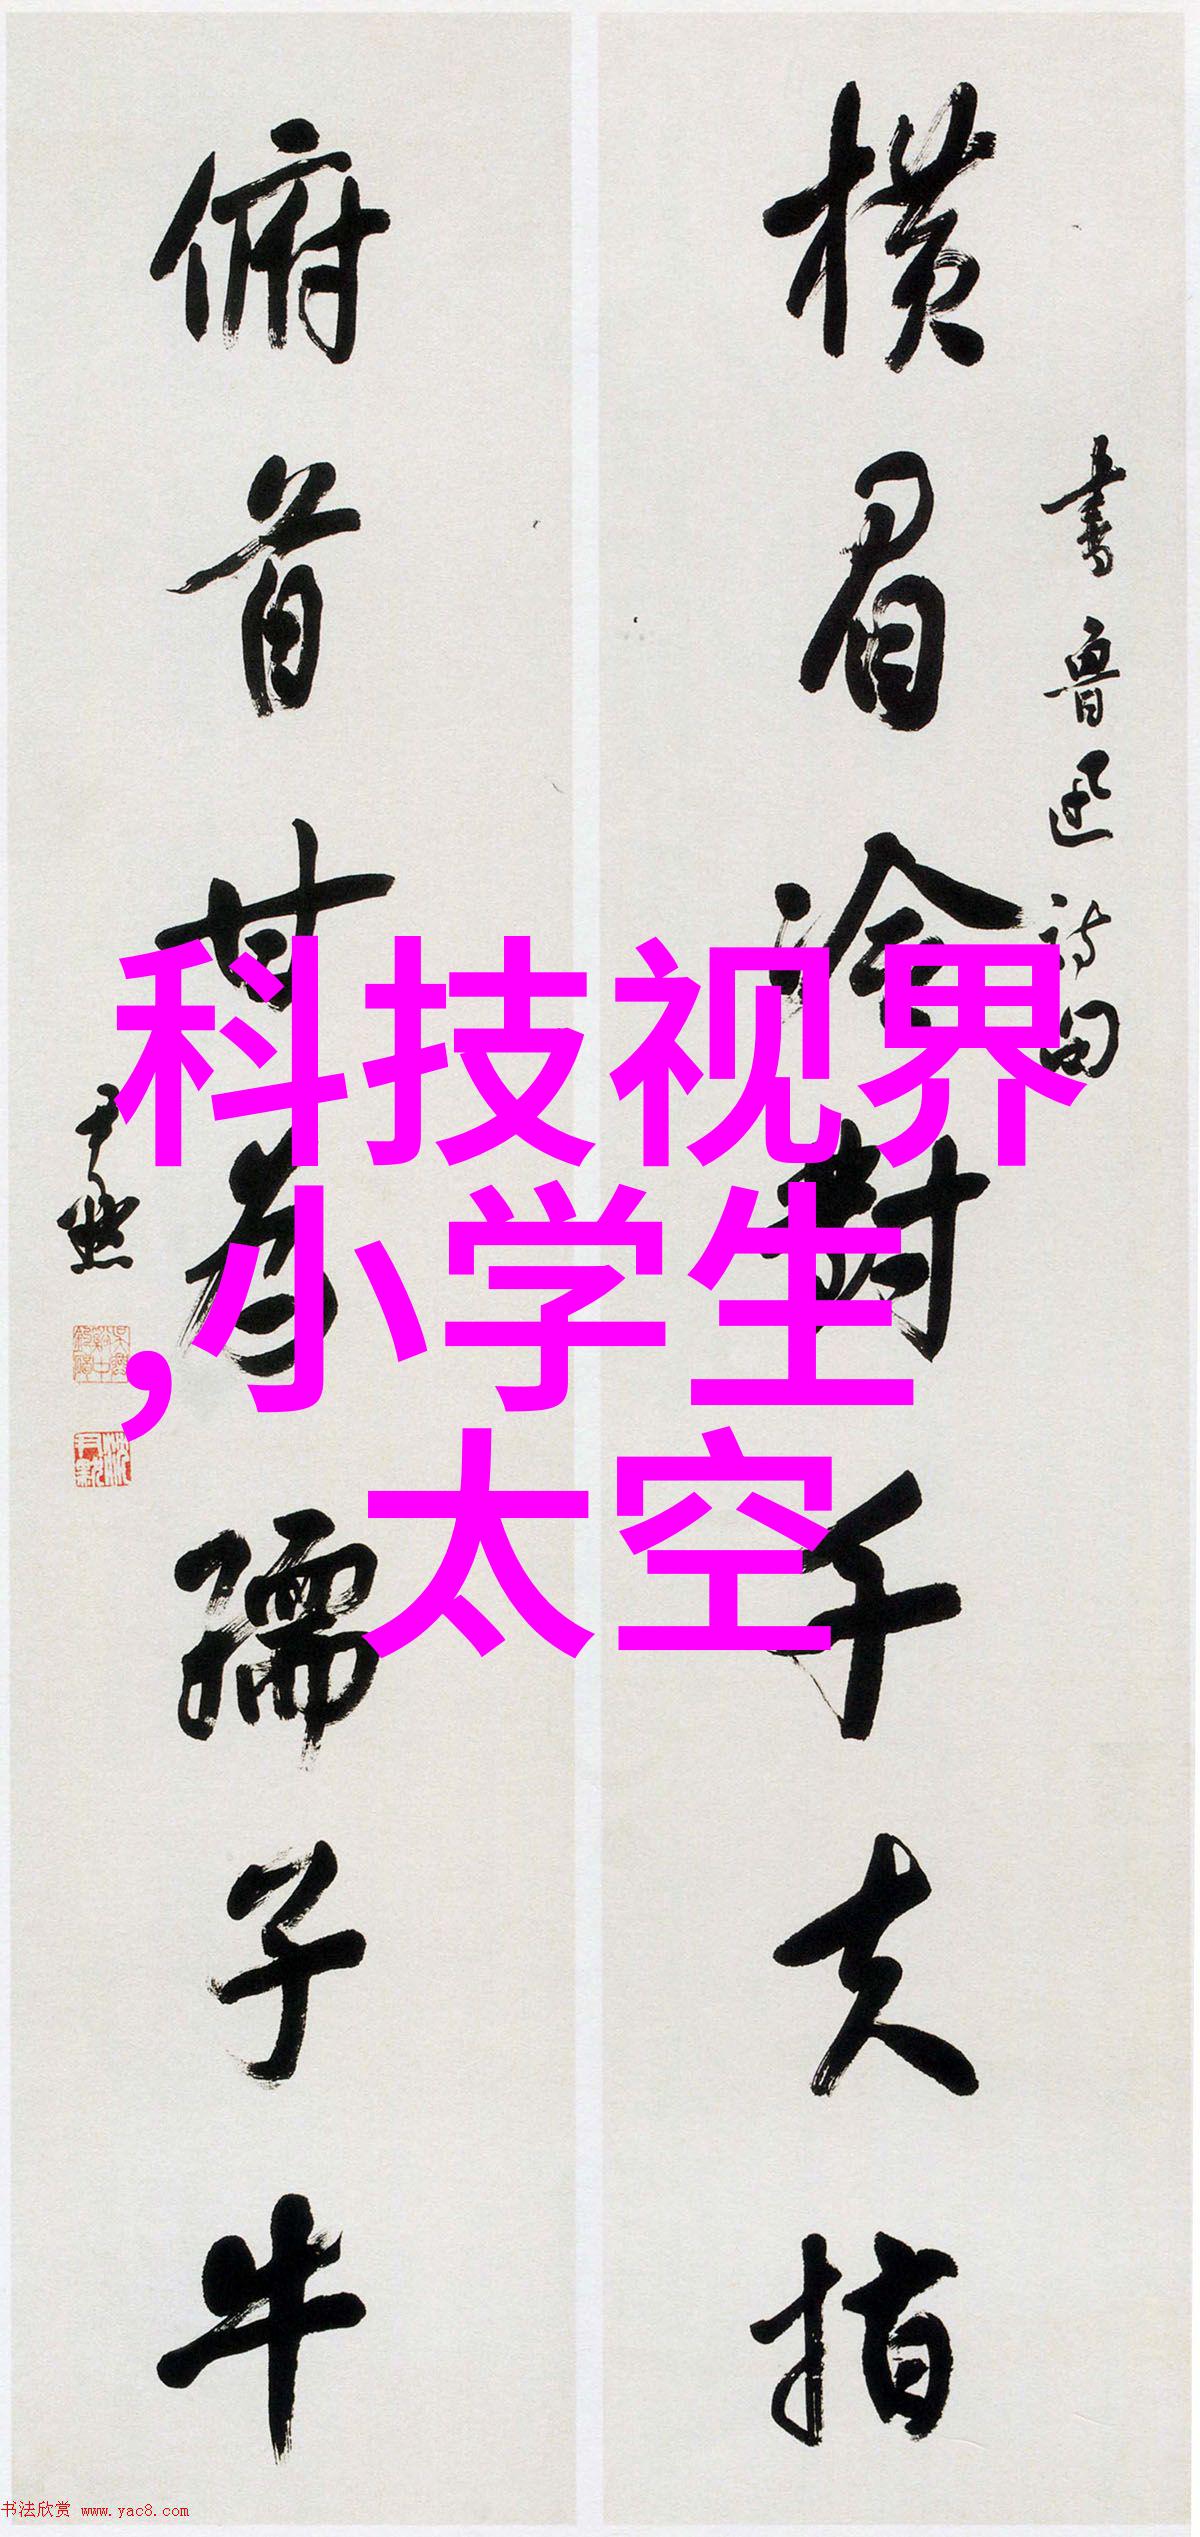 横眉冷對千夫指
書魯迅詩句
俯首甘為孺子牛
尹默
科技视界
,小学生
太空
书法欣赏 www.yac8.com